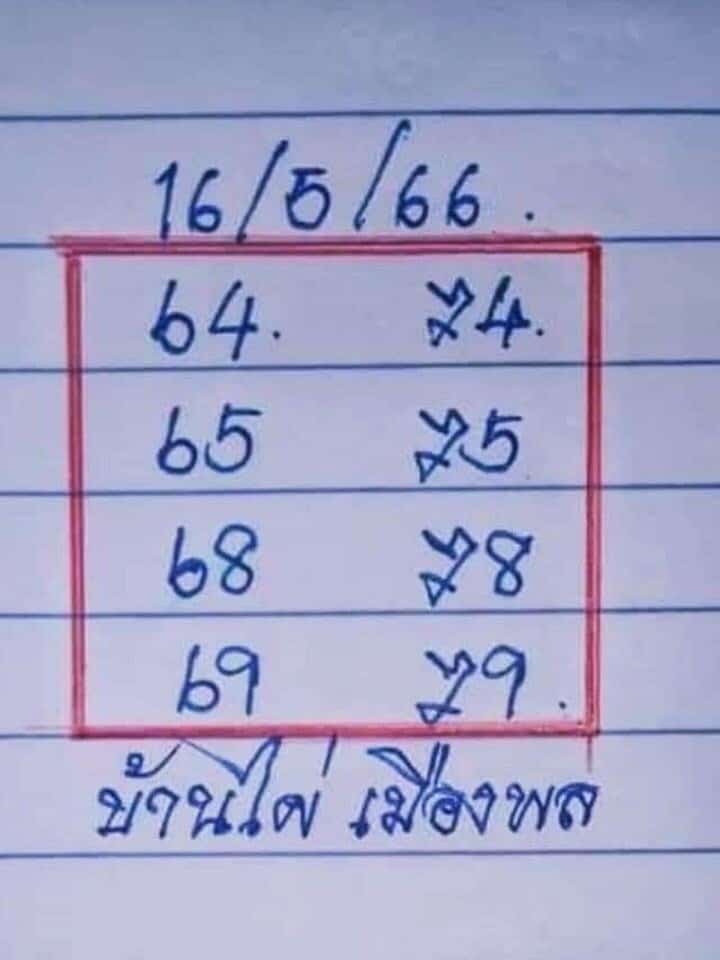 16/5/66.
64. 74.
65 75.
68 78
69 79.
บ้านไผ่ เมืองพล